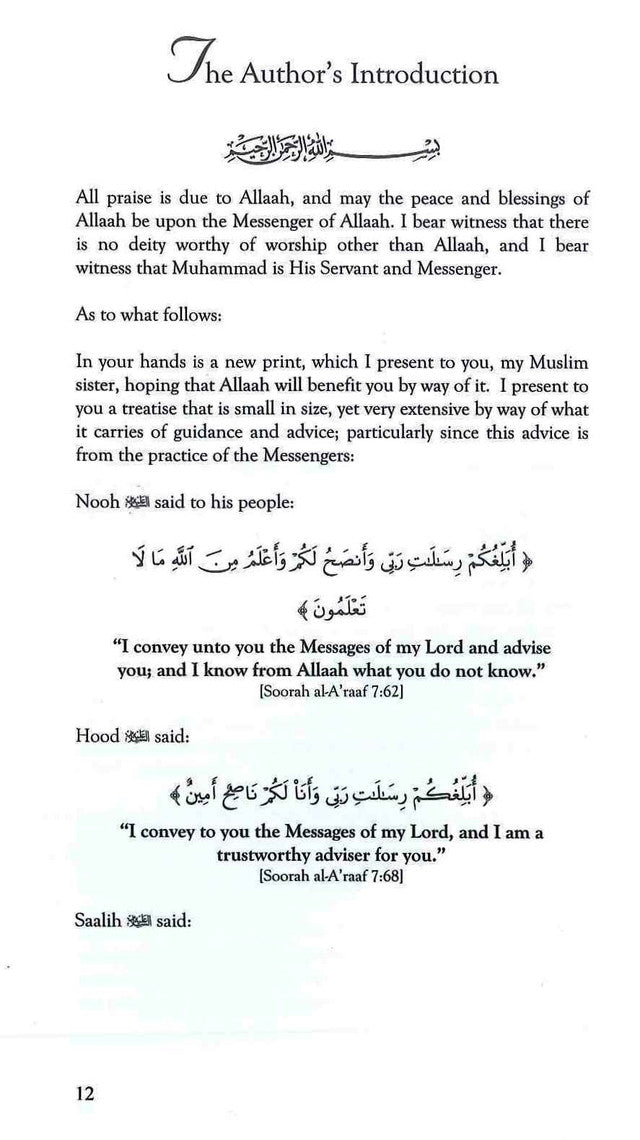 The Author's Introduction
بسم الله الرحمن الرحيم
All praise is due to Allaah, and may the peace and blessings of
Allaah be upon the Messenger of Allaah. I bear witness that there
is no deity worthy of worship other than Allaah, and I bear
witness that Muhammad is His Servant and Messenger.
As to what follows:
In your hands is a new print, which I present to you, my Muslim
sister, hoping that Allaah will benefit you by way of it. I present to
you a treatise that is small in size, yet very extensive by way of what
it carries of guidance and advice; particularly since this advice is
from the practice of the Messengers:
Nooh عليه السلام said to his people:
﴿ أُبَلِّغُكُمْ رِسَٰلَٰتِ رَبِّى وَأَنصَحُ لَكُمْ وَأَعْلَمُ مِنَ ٱللَّهِ مَا لَا
تَعْلَمُونَ ﴾
"I convey unto you the Messages of my Lord and advise
you; and I know from Allaah what you do not know."
[Soorah al-A'raaf 7:62]
Hood عليه السلام said:
﴿ أُبَلِّغُكُمْ رِسَٰلَٰتِ رَبِّى وَأَنَا۠ لَكُمْ نَاصِحٌ أَمِينٌ ﴾
"I convey to you the Messages of my Lord, and I am a
trustworthy adviser for you."
[Soorah al-A'raaf 7:68]
Saalih عليه السلام said:
12